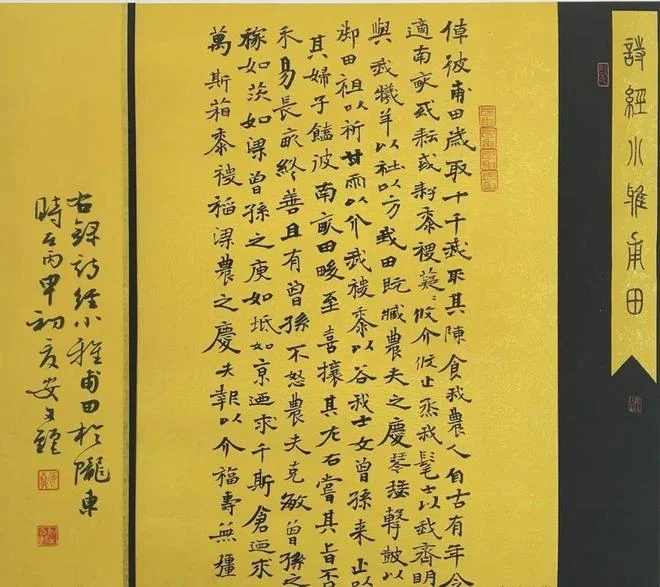 詩經小雅甫田
倬彼甫田歲取十千我取其陳食我農人自古有年今
適南畝或耘或耔黍稷薿〻攸介攸止烝我髦士以我齊明
與我犧羊以社以方我田既臧農夫之慶琴瑟擊鼓以
御田祖以祈甘雨以介我稷黍以谷我士女曾孫来止以
其婦子饁彼南畝田畯至喜攘其左右嘗其旨否
禾易長畝終善且有曾孫不怒農夫克敏曾孫之
稼如茨如梁曾孫之庾如坻如京迺求千斯倉迺求
萬斯箱黍稷稻梁農之慶夫報以介福壽無疆
右錄詩經小雅甫田於隴東
時在丙申初夏安文